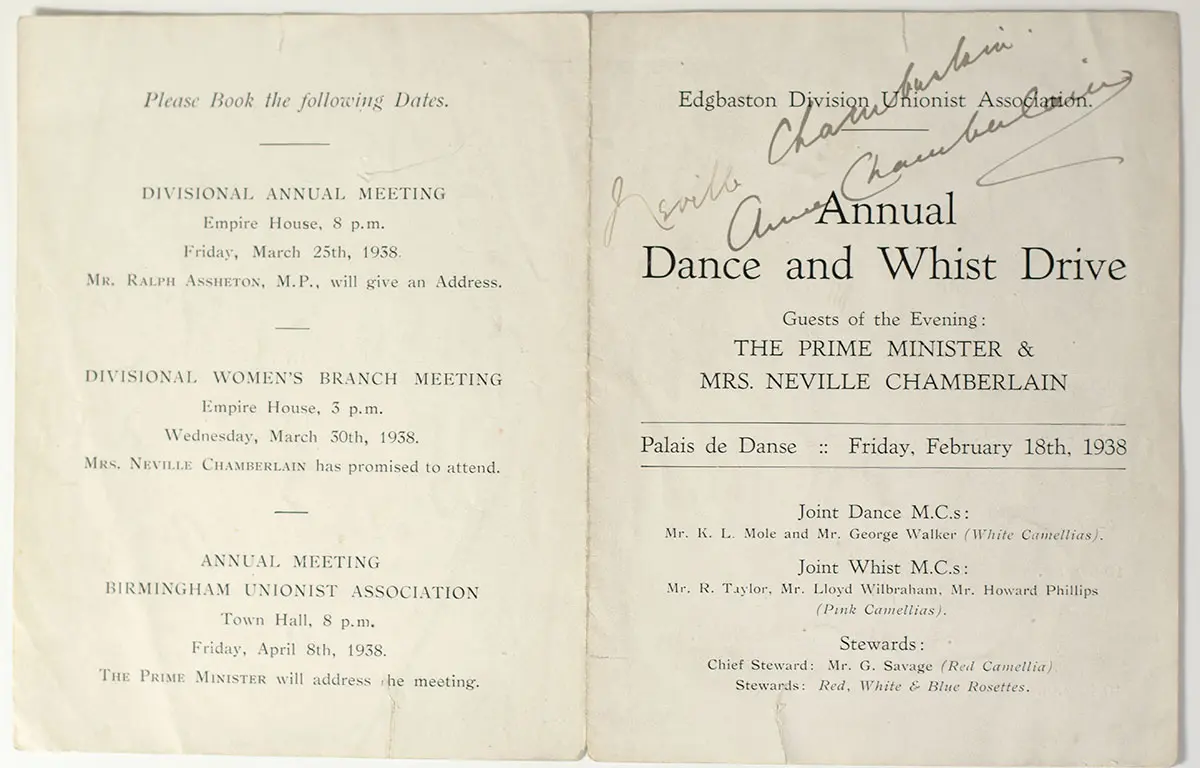 Please Book the following Dates.
DIVISIONAL ANNUAL MEETING
Empire House, 8 p.m.
Friday, March 25th, 1938.
MR. RALPH ASSHETON, M.P., will give an Address.
DIVISIONAL WOMEN'S BRANCH MEETING
Empire House, 3 p.m.
Wednesday, March 30th, 1938.
MRS. NEVILLE CHAMBERLAIN has promised to attend.
ANNUAL MEETING
BIRMINGHAM UNIONIST ASSOCIATION
Town Hall, 8 p.m.
Friday, April 8th, 1938.
THE PRIME MINISTER will address the meeting.
Neville Chamberlain.
Edgbaston Division Unionist Association.
Annie Chamberlain
Annual
Dance and Whist Drive
Guests of the Evening:
THE PRIME MINISTER &
MRS. NEVILLE CHAMBERLAIN
Palais de Danse :: Friday, February 18th, 1938
Joint Dance M.C.s:
Mr. K. L. Mole and Mr. George Walker (White Camellias).
Joint Whist M.C.s:
Mr. R. Taylor, Mr. Lloyd Wilbraham, Mr. Howard Phillips
(Pink Camellias).
Stewards:
Chief Steward: Mr. G. Savage (Red Camellia)
Stewards: Red, White & Blue Rosettes.